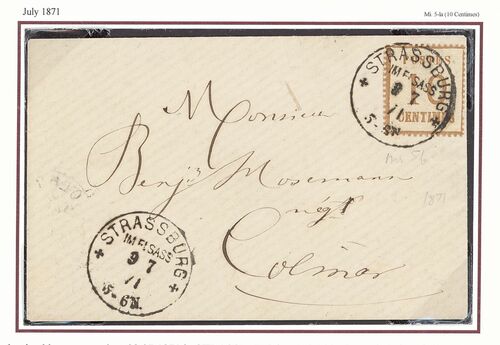 July 1871
Mi 5-Ia (10 Centimes)
STRASSBURG
IM ELSASS
9 7
71
5-6N.
POSTES
10
CENTIMES
Monsieur
Benj^n Mosemann
négt
Colmar
1871
STRASSBURG
IM ELSASS
9 7
71
5-6N.